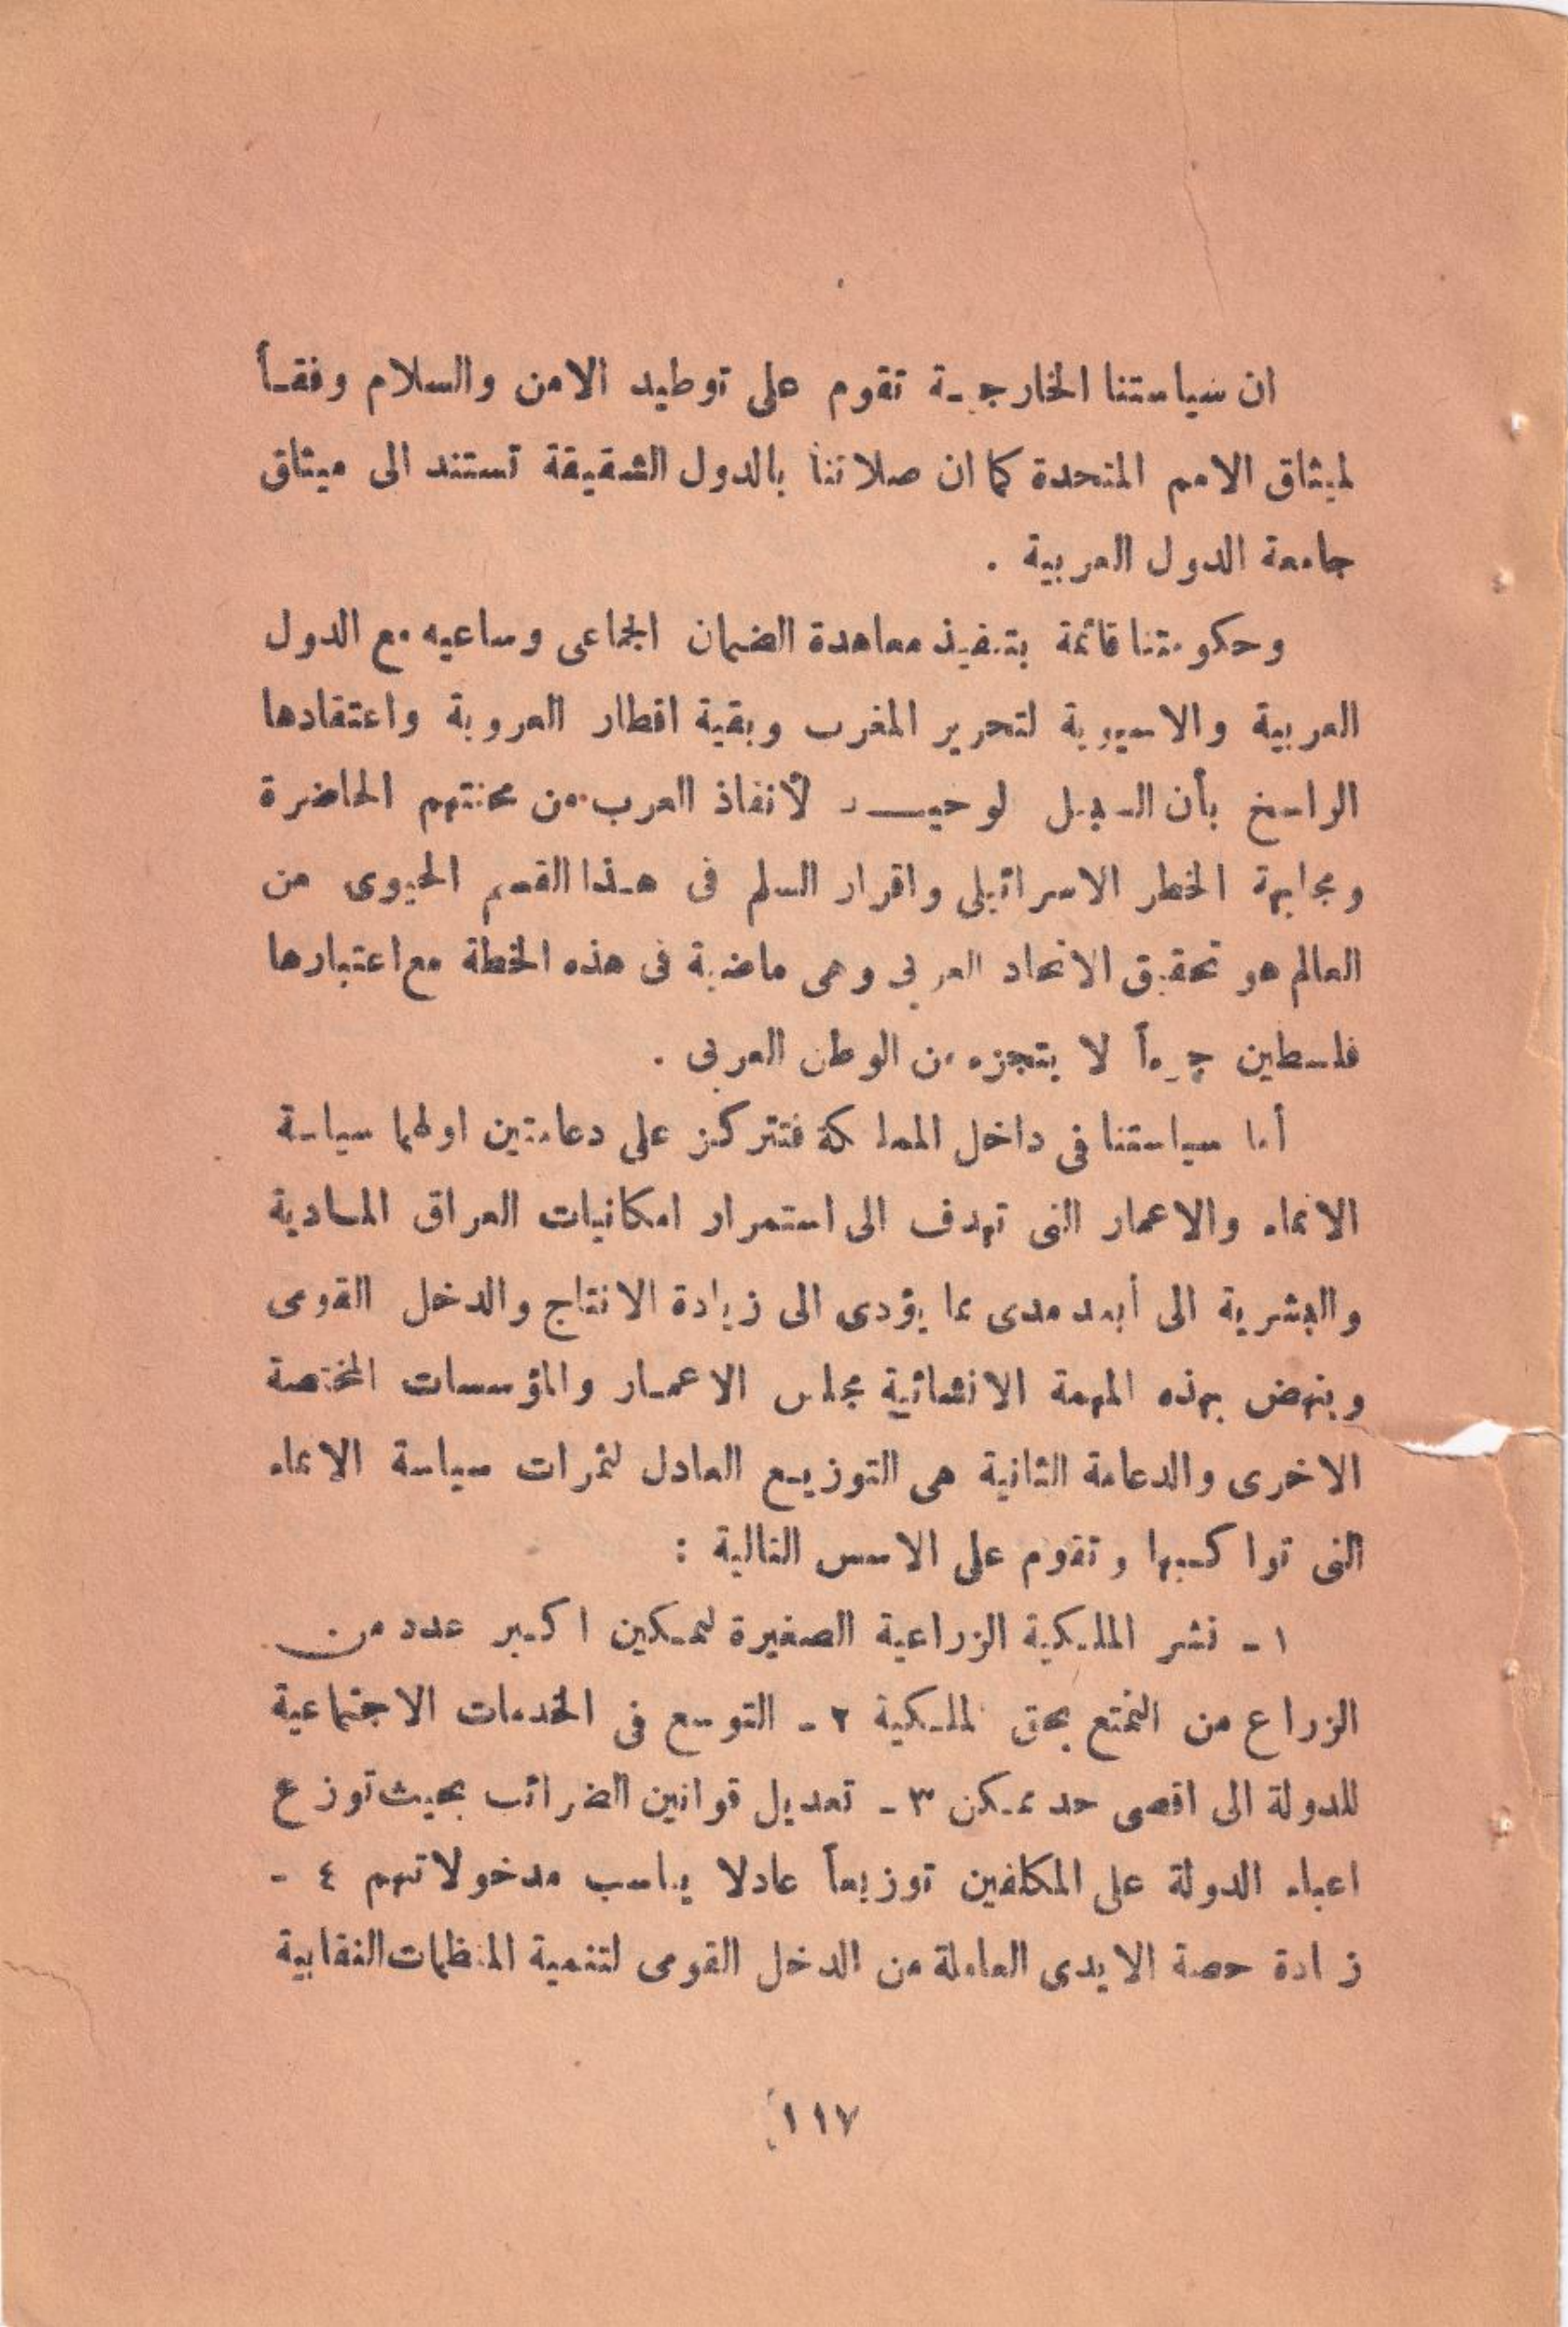 ان سياستنا الخارجية تقوم على توطيد الامن والسلام وفقـاً
لميثاق الامم المتحدة كما ان صلاتنا بالدول الشقيقة تستند الى ميثاق
جامعة الدول العربية .
وحكومتنا قائمة بتنفيذ معاهدة الضمان الجماعى ومساعيه مع الدول
العربية والاسيوية لتحرير المغرب وبقية اقطار العروبة واعتقادها
الراسخ بأن السبيل لوحيـــد لأنقاذ العرب من محنتهم الحاضرة
ومجابهة الخطر الاسرائيلى واقرار السلم فى هـذا القسم الحيوى من
العالم هو تحقيق الاتحاد العربى وهى ماضية فى هذه الخطة مع اعتبارها
فلسطين جزءاً لا يتجزء من الوطن العربى .
أما سياستنا فى داخل المملكة فتتركز على دعامتين اولهما سياسة
الانماء والاعمار التى تهدف الى استمرار امكانيات العراق المـادية
والبشرية الى أبعد مدى مما يؤدى الى زيادة الانتاج والدخل القومى
وينهض بهذه المهمة الانشائية مجلس الاعمـار والمؤسسات المختصة
الاخرى والدعامة الثانية هى التوزيـع العادل لثمرات سياسة الانماء
التى تواكبها وتقوم على الاسس التالية :
١ - نشر الملـكية الزراعية الصغيرة لتمـكين اكـبر عدد من
الزراع من التمتع بحق الملـكية ٢ - التوسع فى الخدمات الاجتماعية
للدولة الى اقصى حد ممـكن ٣ - تعديل قوانين الضرائب بحيث توزع
اعباء الدولة على المكلفين توزيعاً عادلا يناسب مدخولاتهم ٤ -
زيادة حصة الايدى العاملة من الدخل القومى لتنمية المنظمات النقابية
١١٧